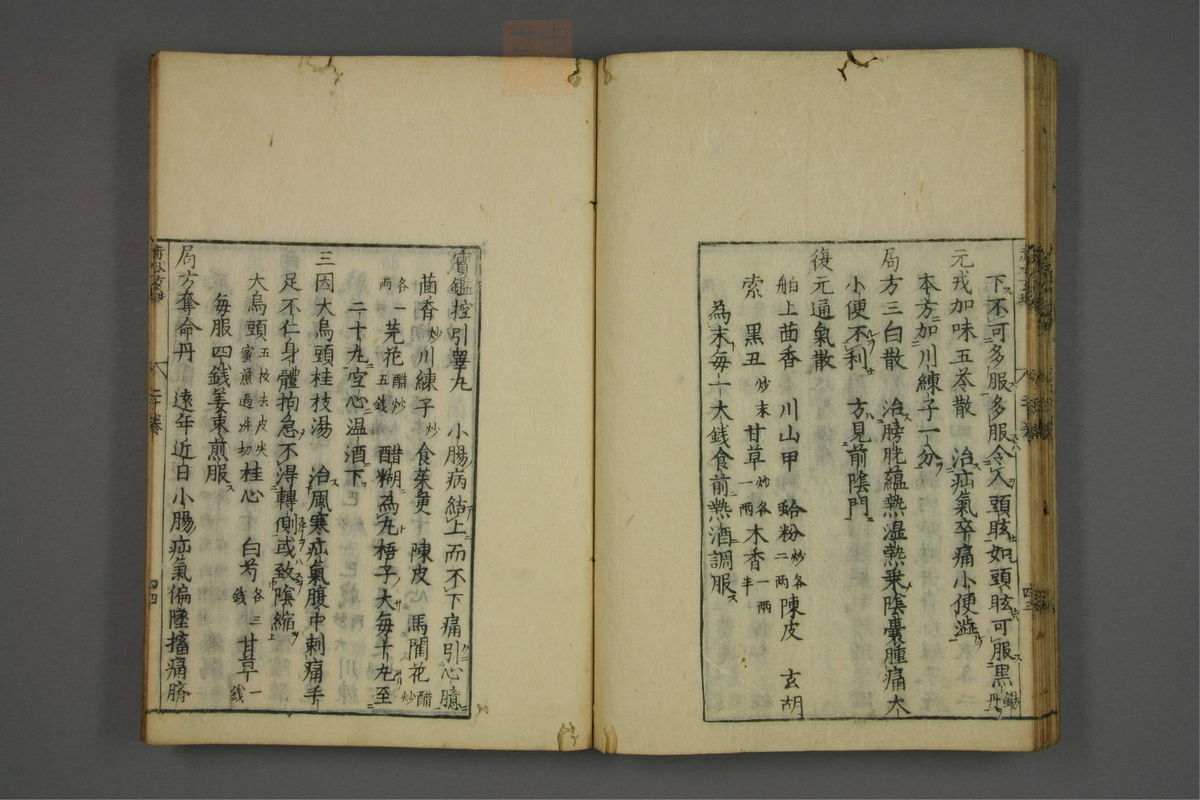 下不可多服多服令人頭眩如頭眩可服黑錫丹
元戎加味五苓散 治疝氣卒痛小便澁
本方加川練子一分
局方三白散 治膀胱蘊熱濕熱乗陰囊腫痛大
小便不利 方見前陰門
復元通氣散
舶上茴香 川山甲 蛤粉炒各二両 陳皮 玄胡
索 黒丑炒末 甘草炒各一両 木香一両半
為末每一大銭食前熱酒調服
寳鑑控引睾丸 小腸病結上而不下痛引心臆
茴香炒 川練子炒 食茱萸 陳皮 馬藺花醋炒
各一両 芫花醋炒五銭 醋糊為丸梧子大每十丸至
二十丸空心温酒下
三因大烏頭桂枝湯 治風寒疝氣腹中刺痛手
足不仁身體拘急不淂轉側或致陰縮
大烏頭五枚去皮尖蜜煎過并切 桂心 白芍各三銭 甘草一銭
每服四銭姜棗煎服
局方奪命丹 遠年近日小腸疝氣偏墜搐痛臍